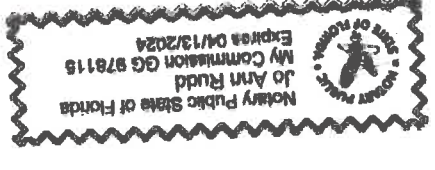 Notary Public State of Florida
Jo Ann Rudd
My Commission GG 978115
Expires 04/13/2024
NOTARY PUBLIC
STATE OF FLORIDA